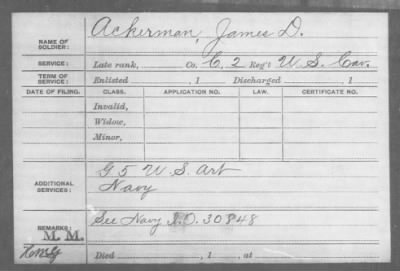 Ackerman, James D.
NAME OF SOLDIER:
SERVICE: Late rank, Co. C, 2 Reg't U S. Cav.
TERM OF SERVICE: Enlisted , 1 Discharged , 1
DATE OF FILING. CLASS. APPLICATION NO. LAW. CERTIFICATE NO.
Invalid,
Widow,
Minor,
G 5 U S. Art
ADDITIONAL SERVICES: Navy
See Navy I.O. 30848
REMARKS:
M. M.
Died , 1 , at